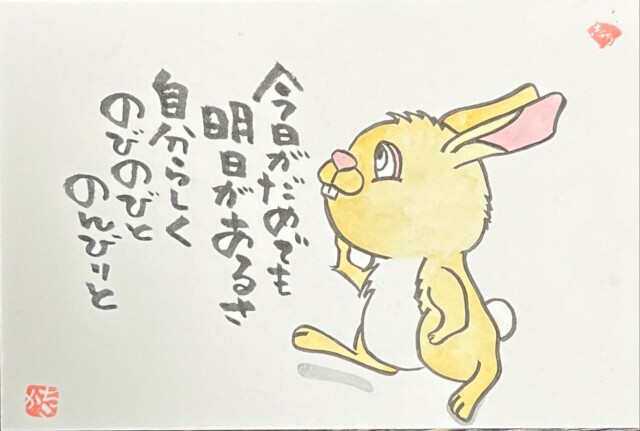 今日がだめでも
明日があるさ
自分らしく
のびのびと
のんびりと